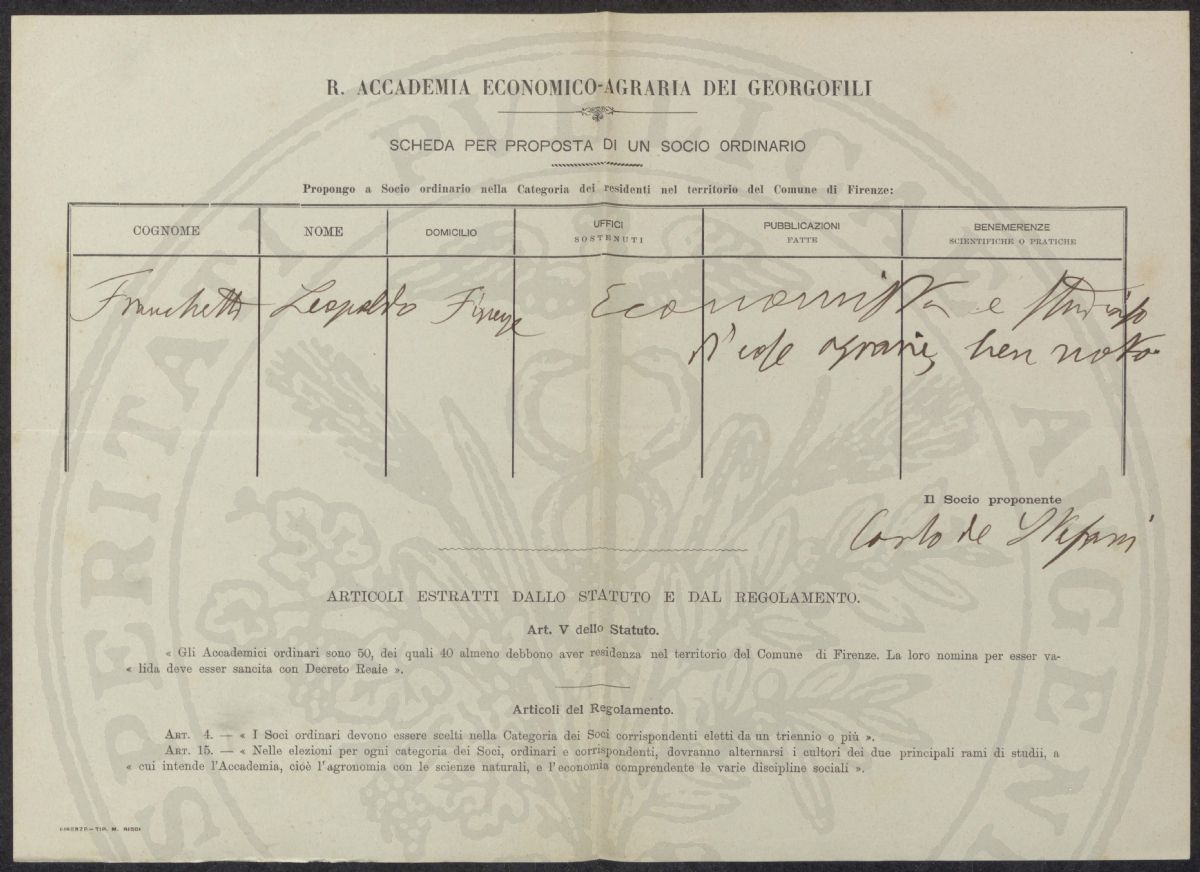 R. ACCADEMIA ECONOMICO-AGRARIA DEI GEORGOFILI
SCHEDA PER PROPOSTA DI UN SOCIO ORDINARIO
Propongo a Socio ordinario nella Categoria dei residenti nel territorio del Comune di Firenze:
COGNOME NOME DOMICILIO UFFICI SOSTENUTI PUBBLICAZIONI FATTE BENEMERENZE SCIENTIFICHE O PRATICHE
Franchetti Leopoldo Firenze Economista e studioso
d'cose agrarie, ben noto
Il Socio proponente
Carlo de Stefani
ARTICOLI ESTRATTI DALLO STATUTO E DAL REGOLAMENTO.
Art. V dello Statuto.
« Gli Accademici ordinari sono 50, dei quali 40 almeno debbono aver residenza nel territorio del Comune di Firenze. La loro nomina per esser va-
« lida deve esser sancita con Decreto Reale ».
Articoli del Regolamento.
ART. 4. — « I Soci ordinari devono essere scelti nella Categoria dei Soci corrispondenti eletti da un triennio o più ».
ART. 15. — « Nelle elezioni per ogni categoria dei Soci, ordinari e corrispondenti, dovranno alternarsi i cultori dei due principali rami di studii, a
« cui intende l'Accademia, cioè l'agronomia con le scienze naturali, e l'economia comprendente le varie discipline sociali ».
FIRENZE—TIP. M. RICCI
PROSPERITATI PUBLICAE AUGENDAE